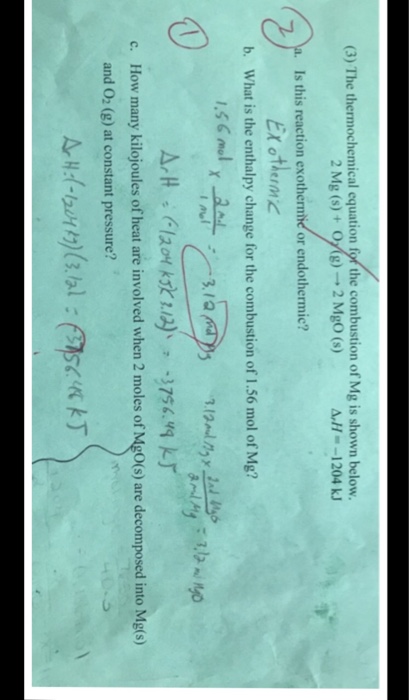 (3) The thermochemical equation for the combustion of Mg is shown below.
2 Mg (s) + O₂ (g) → 2 MgO (s) ΔᵣH = -1204 kJ
②
a. Is this reaction exothermic or endothermic?
Exothermic
b. What is the enthalpy change for the combustion of 1.56 mol of Mg?
1.56 mol x 2 mol / 1 mol = 3.12 mol Mg
3.12 mol Mg x 2 mol MgO / 2 mol Mg = 3.12 mol MgO
①
ΔrH = (-1204 kJ)(3.12) = -3756.48 kJ
c. How many kilojoules of heat are involved when 2 moles of MgO(s) are decomposed into Mg(s)
and O₂ (g) at constant pressure?
ΔrH = (-1204 kJ)(3.12) = -3756.48 kJ